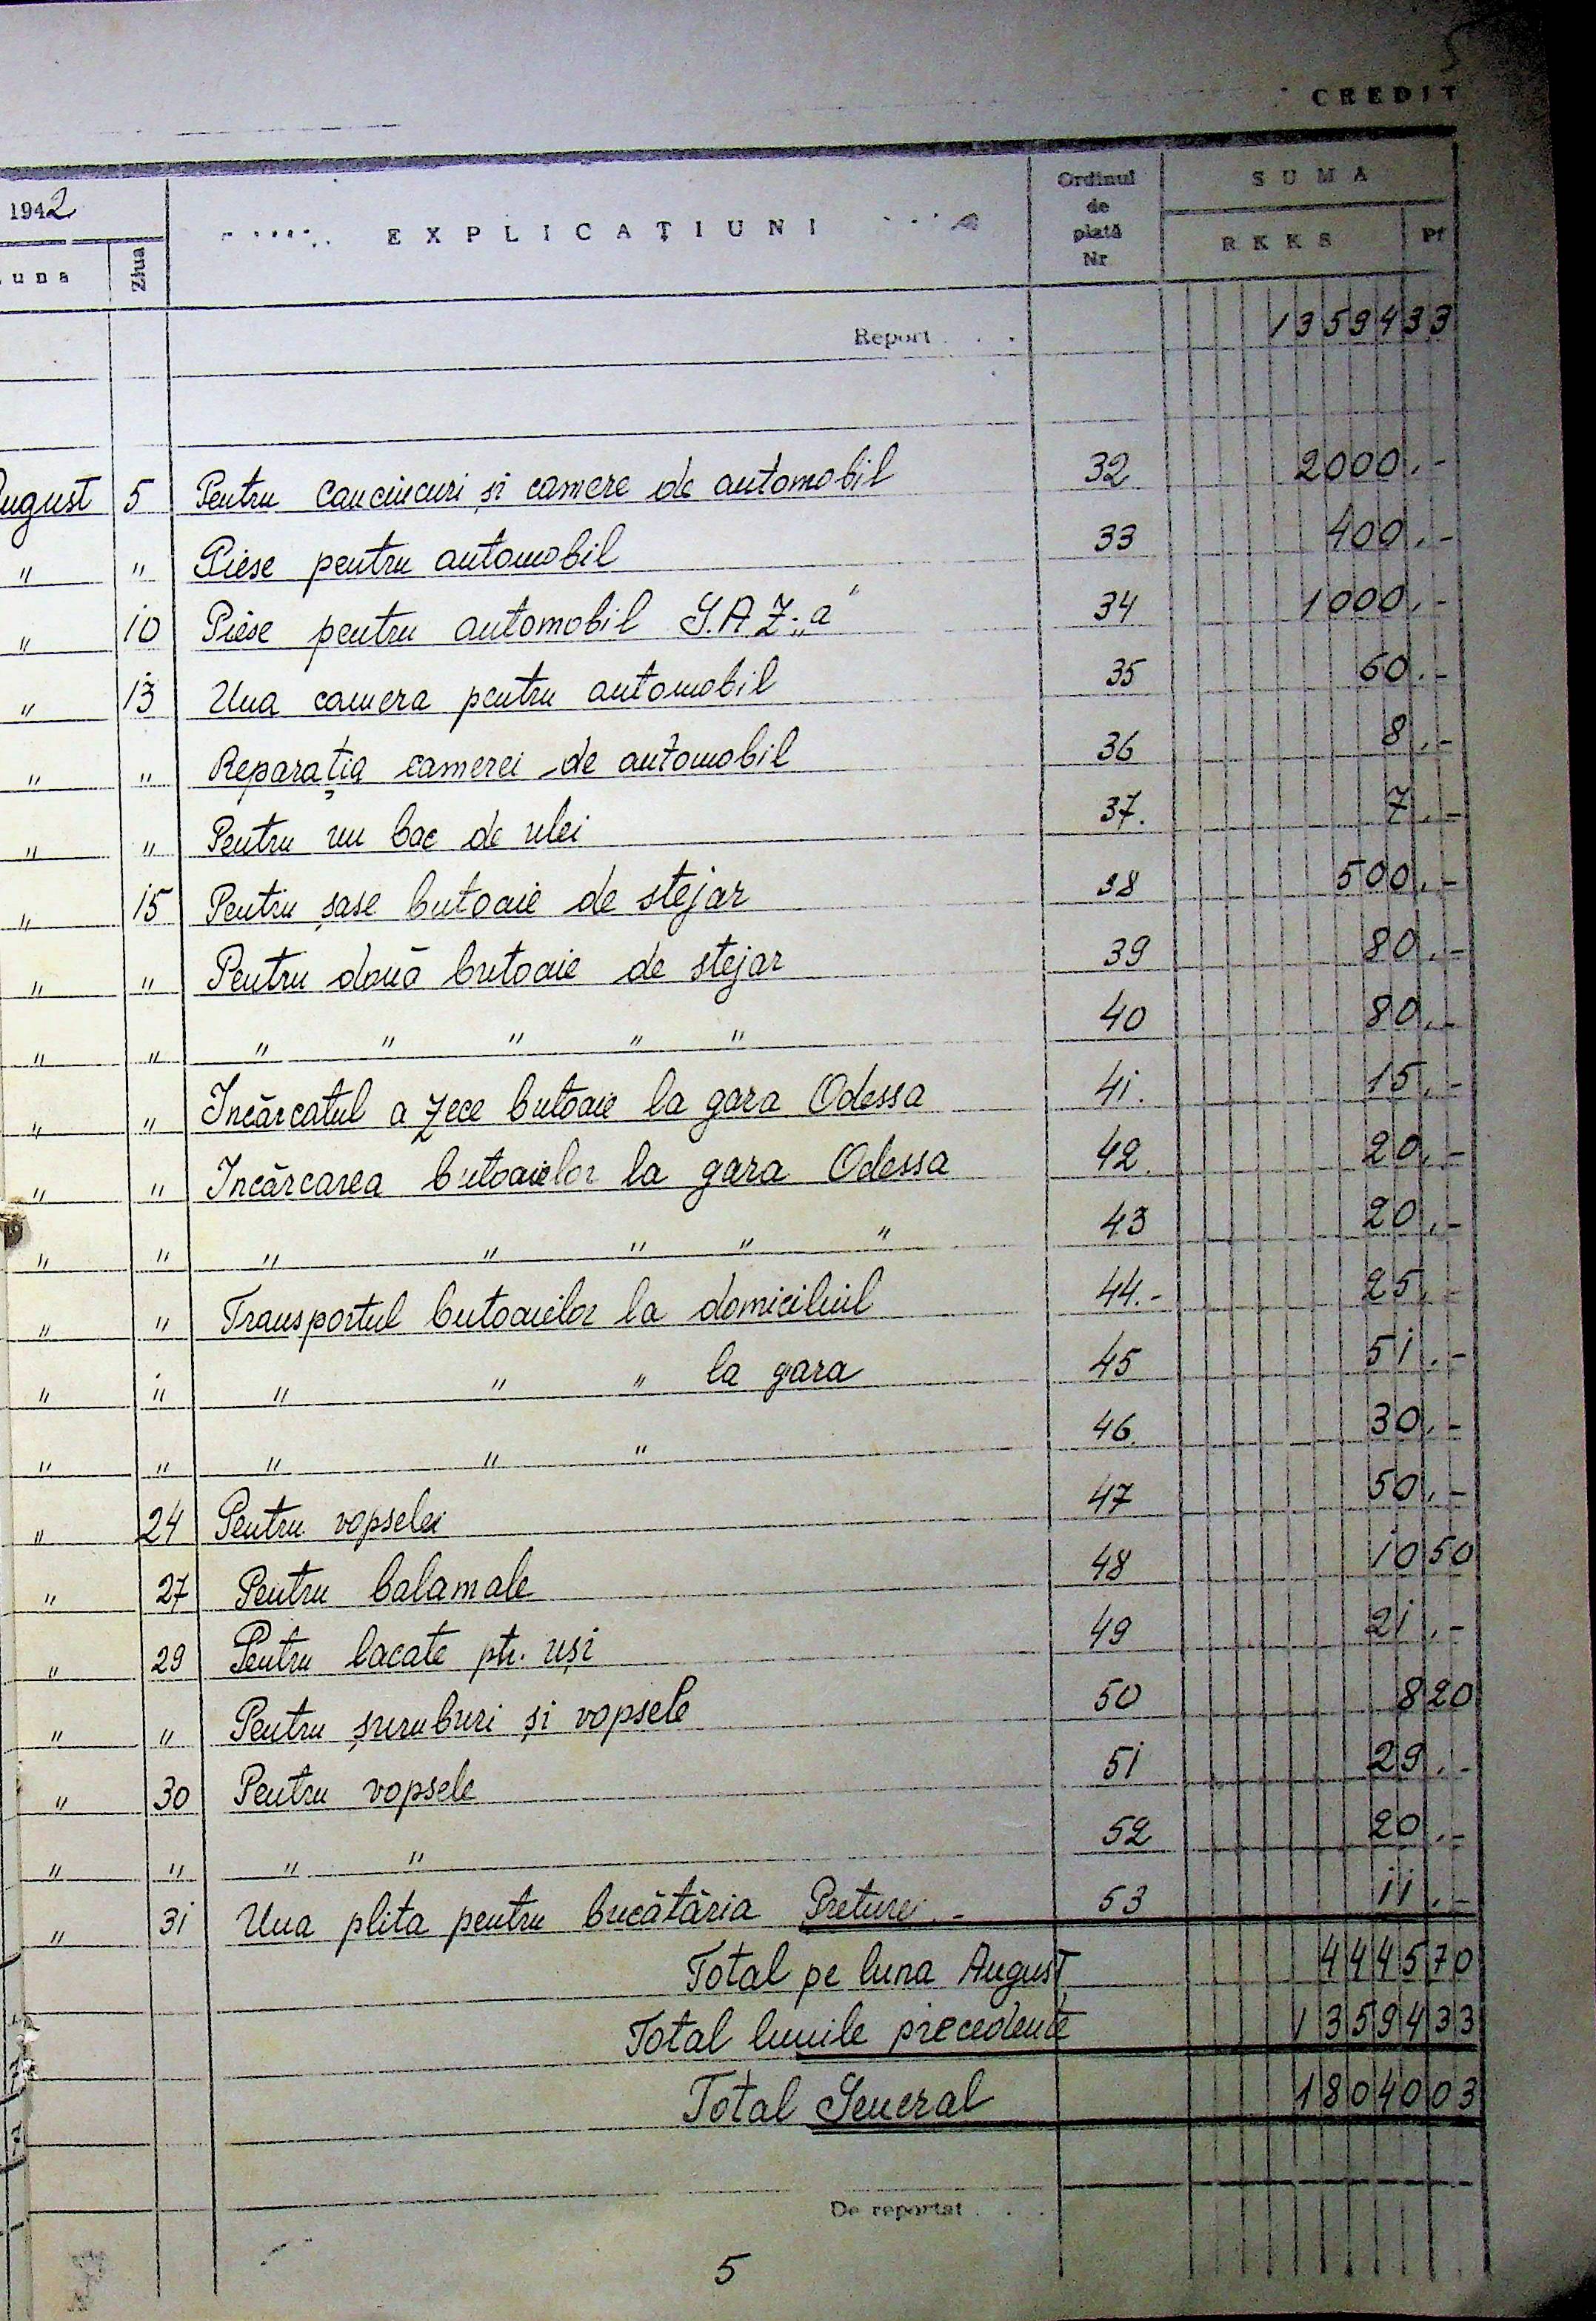 CREDIT
1942 EXPLICAȚIUNI Ordinul de plată Nr SUMA
una Ziua RKKS Pf
Report . . . 13594 33
August 5 Pentru cauciucuri și camere de automobil 32 2000.-
" " Piese pentru automobil 33 400.-
" 10 Piese pentru automobil G.A.Z. „a" 34 1000.-
" 13 Una camera pentru automobil 35 60.-
" " Reparația camerei de automobil 36 8.-
" " Pentru un bac de ulei 37. 7.-
" 15 Pentru șase butoaie de stejar 38 500.-
" " Pentru două butoaie de stejar 39 80.-
" " " " " " " 40 80.-
" " Incărcatul a zece butoaie la gara Odessa 41. 15.-
" " Incărcarea butoaielor la gara Odessa 42. 20.-
" " " " " " " 43 20.-
" " Transportul butoaielor la domiciliul 44.- 25.-
" " " " " la gara 45 51.-
" " " " " 46. 30.-
" 24 Pentru vopselei 47 50.-
" 27 Pentru balamale 48 10 50
" 29 Pentru lacate ptr. uși 49 21.-
" " Pentru șuruburi și vopsele 50 8 20
" 30 Pentru vopsele 51 29.-
" " " " 52 20.-
" 31 Una plita pentru bucătăria Preturei.- 53 11.-
Total pe luna August 4445 70
Total lunile precedente 13594 33
Total General 18040 03
De reportat . . .
5